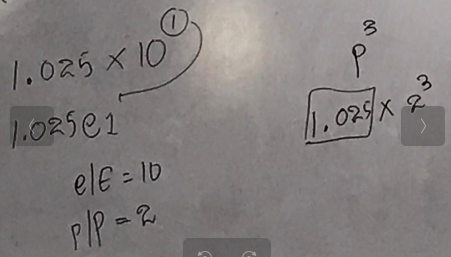 1.025 × 10^1
1.025e1
e/E = 10
p/P = 2
p^3
1.025 × 2^3